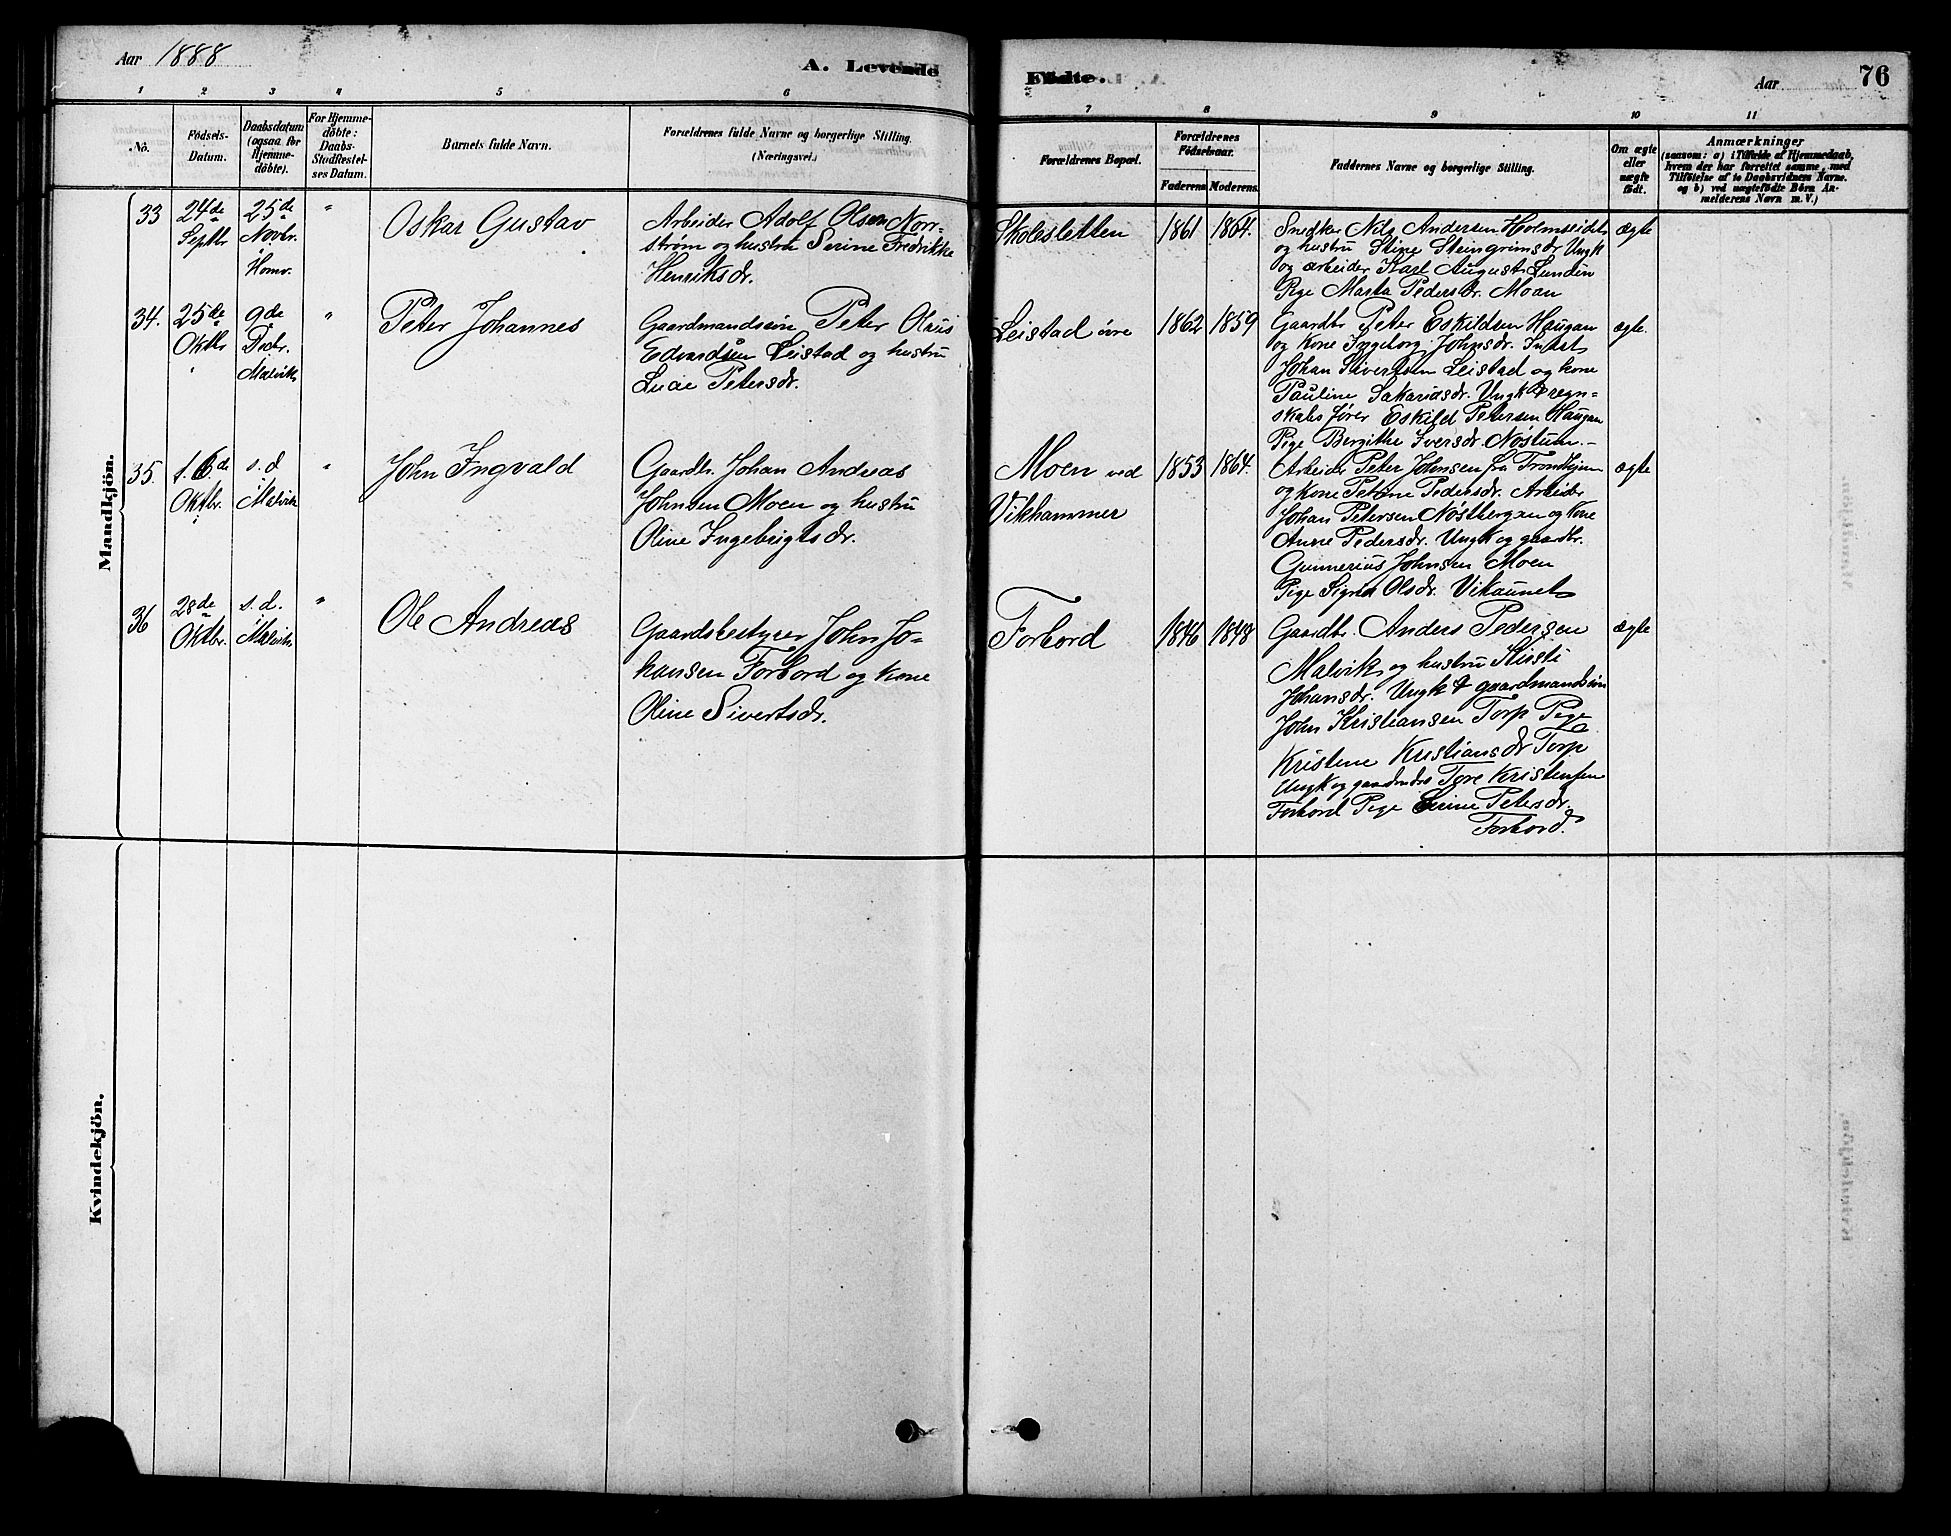 Aar 1888
A. Levende
Fødte.
Aar
76
1 2 3 4 5 6 7 8 9 10 11
No.
Fødsels-
Datum.
Daabsdatum
(ogsaa for
Hjemme-
døbte).
For Hjemme-
døbte:
Daabs-
Stadfæstel-
ses Datum.
Barnets fulde Navn.
Forældrenes fulde Navne og borgerlige Stilling.
(Næringsvei.)
Forældrenes Bopæl.
Forældrenes
Fødselsaar.
Faderens Moderens.
Faddernes Navne og borgerlige Stilling.
Om ægte
eller
uægte
født.
Anmærkninger
(saasom: a) i Tilfælde af Hjemmedaab,
hvem der har forrettet samme, med
Tilføielse af to Daabsvidners Navne.
og b) ved uægtefødte Børn An-
melderens Navn m. V.)
Mandkjön.
33
24de
Septbr
25de
Novbr.
i
Homv.
"
Oskar Gustav
Arbeider Adolf Olsen Norr-
strøm og hustru Serine Fredrikke
Henriksdr.
Skolesletten
1861
1864.
Snedker Nils Andersen Holmseidet
og hustru Stine Steingrimsdr Ungk
og arbeider Karl August Lundin
Pige Marta Pedersdr. Moan
ægte
34.
25de
Oktbr
"
9de
Decbr.
i
Malvik
"
Peter Johannes
Gaardmandssøn Peter Olaus
Edvardsen Leistad og hustru
Lucie Petersdr.
Leistad övre
1862
1859
Gaardbr Peter Eskildsen Haugan
og Kone Ingeborg Johnsdr.
Johan Sivertsen Leistad og kone
Pauline Sakariasdr. Ungk & regn-
skabsfører Eskild Petersen Haugan
Pige Bergithe Iversdr. Nöstum. -
ægte.
35.
Oktbr.
s. d
i
Malvik
"
John Ingvald
Gaardbr. Johan Andreas
Johnsen Moen og hustru
Oline Ingebrigtsdr.
Moen ved
Vikhammer
1853
1864.
Arbeider Peter Johnsen fra Trondhjem
og Kone Petrine Pedersdr. Arbeider
Johan Petersen Nöstbergan og Kone
Anne Pedersdr. Ungk og gaardbr.
Gunnerius Johnsen Moen
Pige Signe Olsdr. Vikaunet
ægte
36
28de
Oktbr.
s. d.
i
Malvik
"
Ole Andreas
Gaardsbestyrer John Jo-
hansen Forbord og kone
Oline Sivertsdr.
Forbord
1846
1848
Gaardbr. Anders Pedersen
Malvik og hustru Kirsti
Johansdr. Ungk & gaardmandssön
John Kristiansen Torp Pige
Kristine Kristiansdr Torp
Ungk og Tore Kristensen
Forbord Pige Serine Petersdr.
Forbord.
ægte
Kvindekjön.